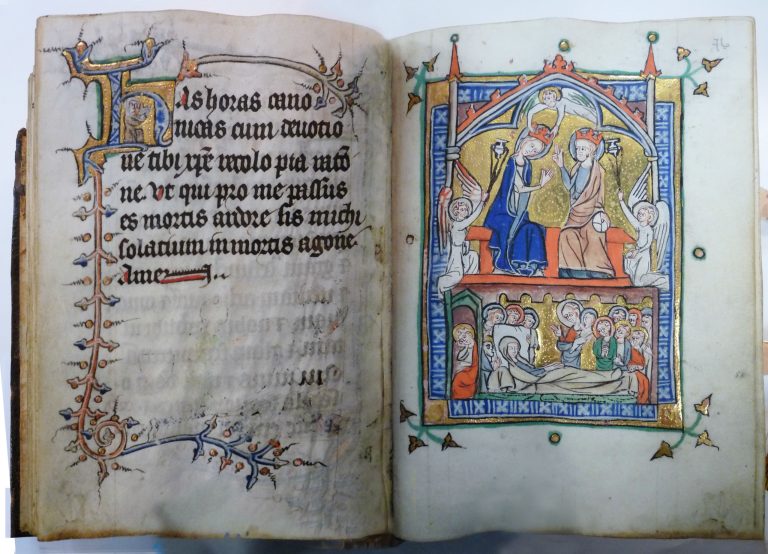 Has horas cano
nicas cum deuotio
ne tibi xp̄e recolo pia racō
ne. Ut qui pro me passus
es mortis ardore sis michi
solacium in mortis agone.
Amen.
76